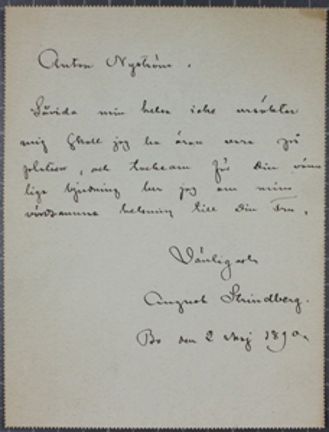 Anton Nyström.
Såvida min helsa icke ursäktar
mig skall jag ha äran vara på
platsen, och tacksam för din vän-
liga bjudning ber jag om min
vördsamma helsning till Din Fru.
Vänligast
August Strindberg.
Bo den 2 Maj 1890.